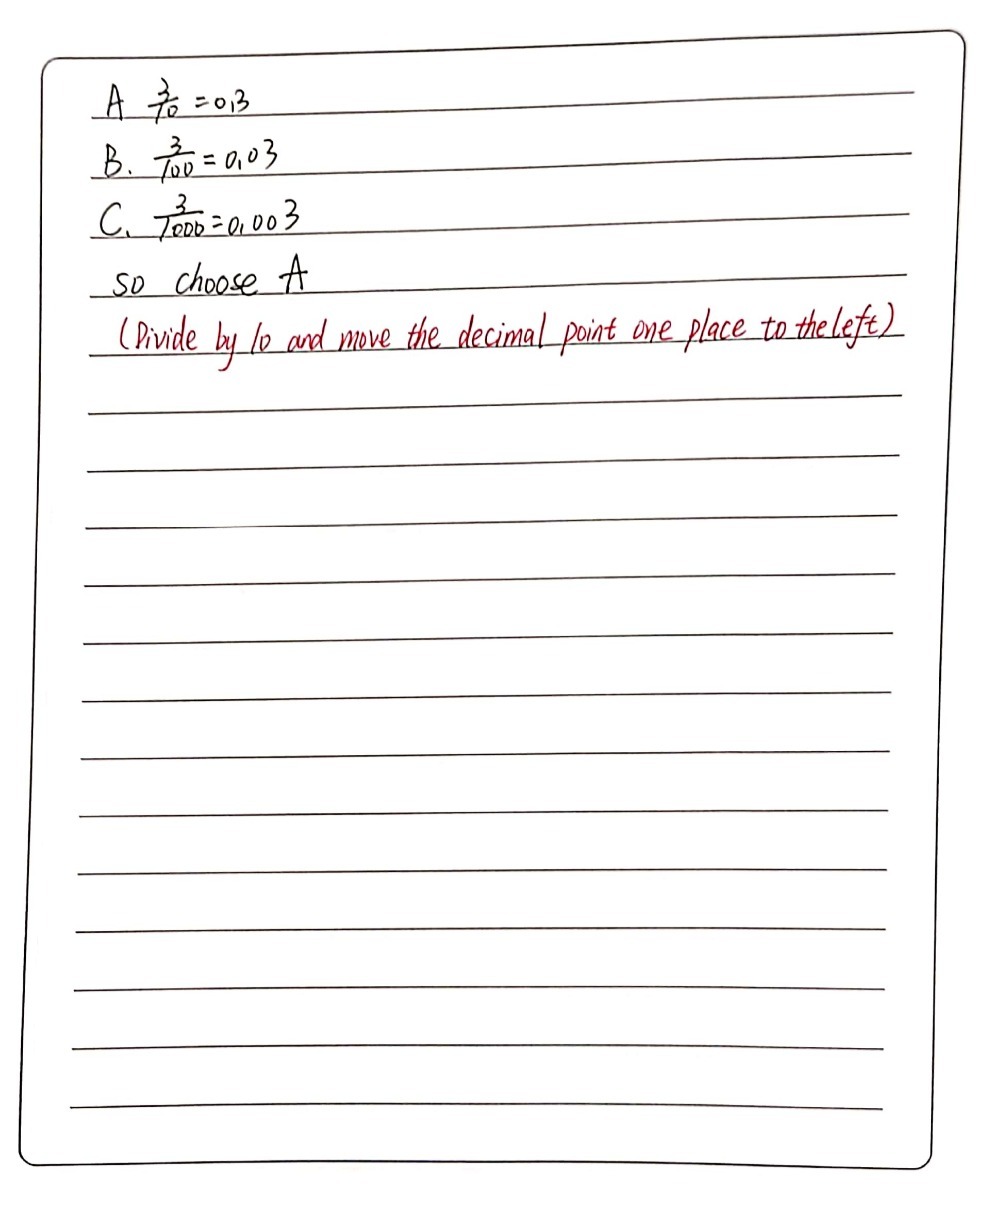 A 3/10 = 0.3
B. 3/100 = 0.03
C. 3/1000 = 0.003
so choose A
(Divide by 10 and move the decimal point one place to the left)